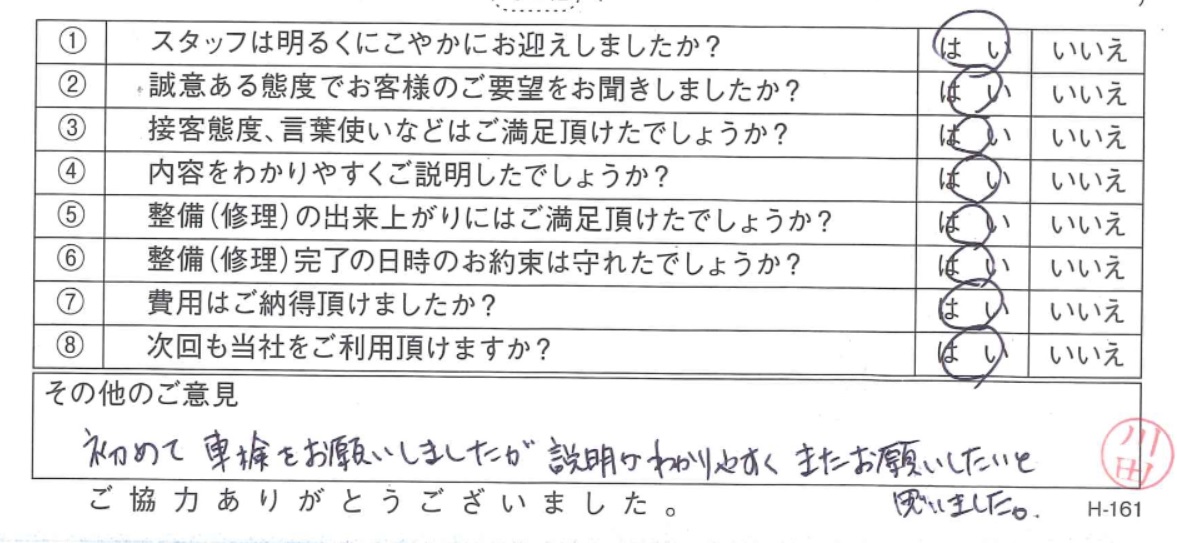 ① スタッフは明るくにこやかにお迎えしましたか? はい いいえ
② 誠意ある態度でお客様のご要望をお聞きしましたか? はい いいえ
③ 接客態度、言葉使いなどはご満足頂けたでしょうか? はい いいえ
④ 内容をわかりやすくご説明したでしょうか? はい いいえ
⑤ 整備(修理)の出来上がりにはご満足頂けたでしょうか? はい いいえ
⑥ 整備(修理)完了の日時のお約束は守れたでしょうか? はい いいえ
⑦ 費用はご納得頂けましたか? はい いいえ
⑧ 次回も当社をご利用頂けますか? はい いいえ
その他のご意見
初めて車検をお願いしましたが 説明わかりやすく またお願いしたいと
思いました。
川田
ご協力ありがとうございました。
H-161